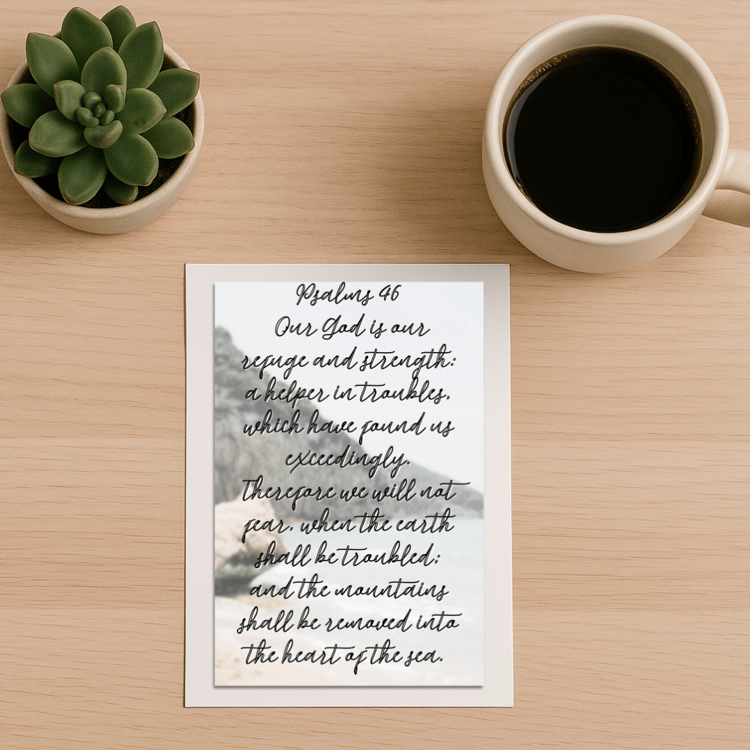 Psalms 46
Our God is our
refuge and strength:
a helper in troubles,
which have found us
exceedingly.
Therefore we will not
fear, when the earth
shall be troubled;
and the mountains
shall be removed into
the heart of the sea.